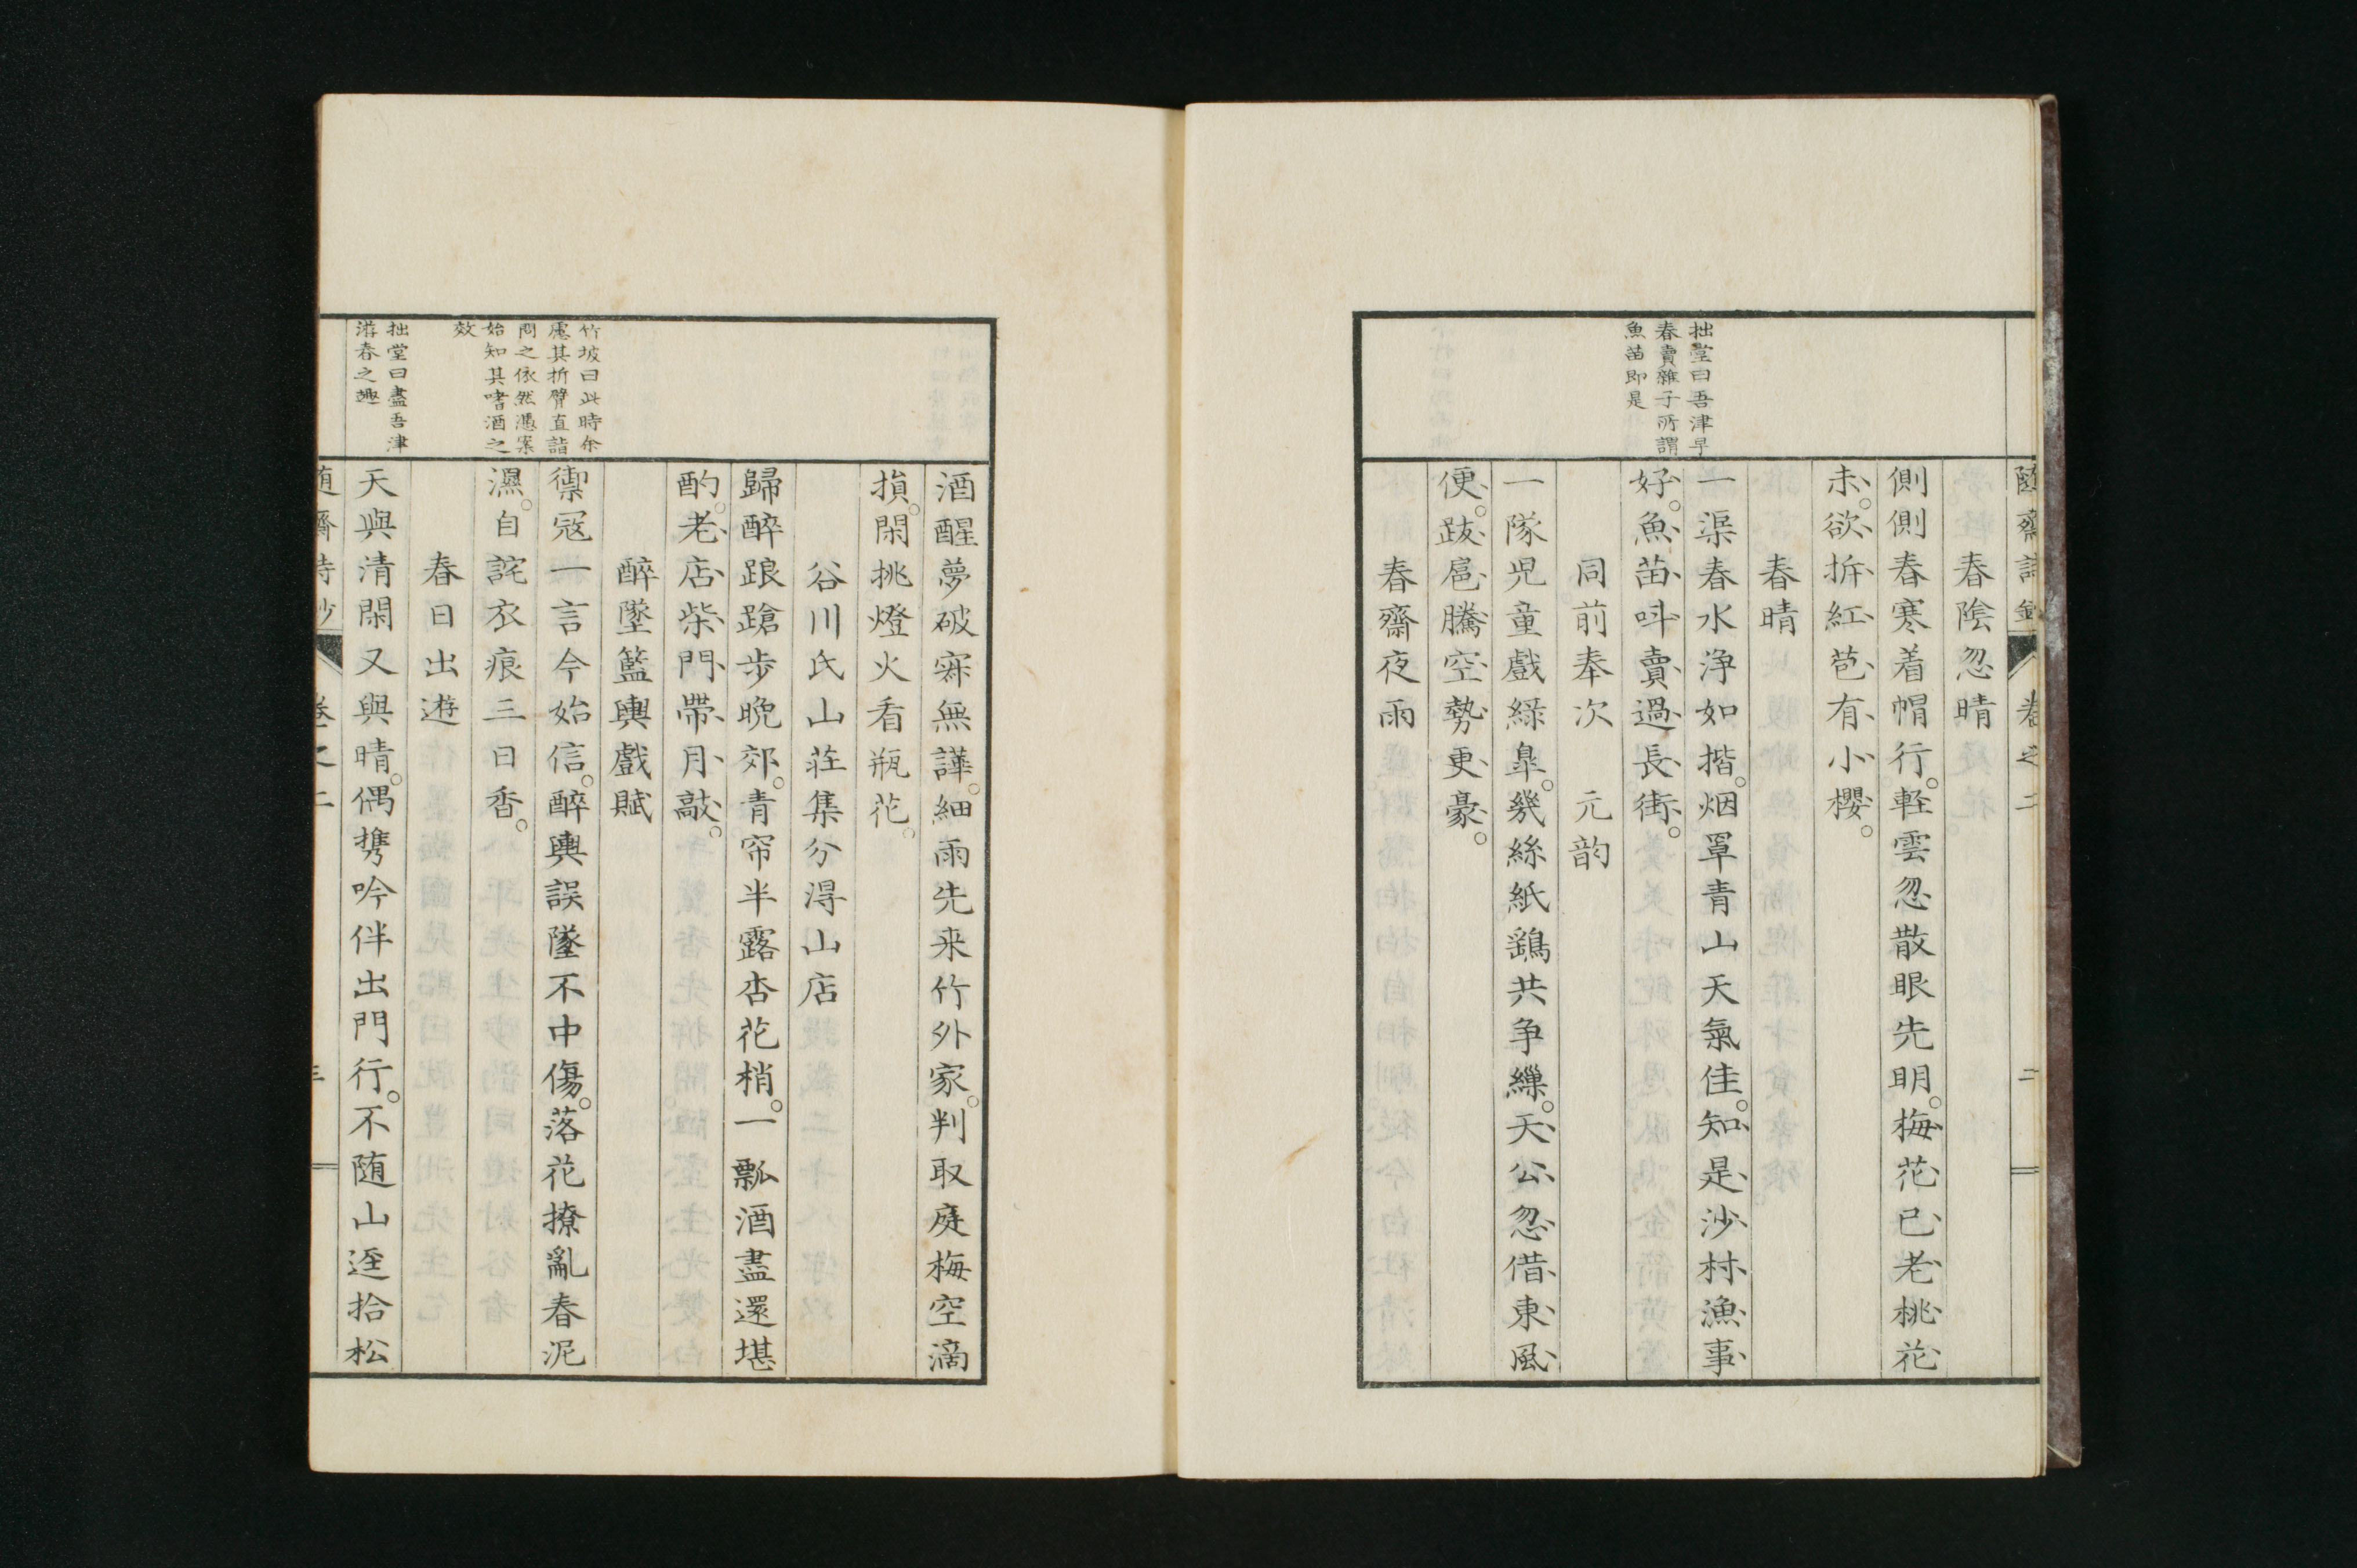 随齋詩鈔
卷之二
二
春陰忽晴
側側春寒着帽行。軽雲忽散眼先明。梅花已老桃花
未。欲拆紅苞有小櫻。
春晴
一渠春水浄如揩。烟罩青山天氣佳。知是沙村漁事
好。魚苗呌賣過長街。
拙堂曰吾津早
春賣雜子所謂
魚苗即是
同前奉次　元韵
一隊児童戲緑皐。幾絲紙鷂共争繅。天公忽借東風
便。跋扈騰空勢更豪。
春齋夜雨
酒醒夢破寐無譁。細雨先来竹外家。判取庭梅空滴
損。閑挑燈火看瓶花。
谷川氏山莊集分淂山店
歸醉踉蹌步晩郊。青帘半露杏花梢。一瓢酒盡還堪
酌。老店柴門帶月敲。
醉墜籃輿戲賦
禦寇一言今始信。醉輿誤墜不中傷。落花撩亂春泥
濕。自詫衣痕三日香。
竹坡曰此時余
慮其折臂直詣
問之依然憑案
始知其嗜酒之
效
春日出遊
天與清閑又與晴。偶携吟伴出門行。不随山逕拾松
拙堂曰盡吾津
游春之趣
随齋詩鈔
卷之二
三